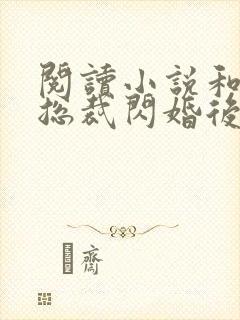 閱讀小說和
總裁閃婚後
齋